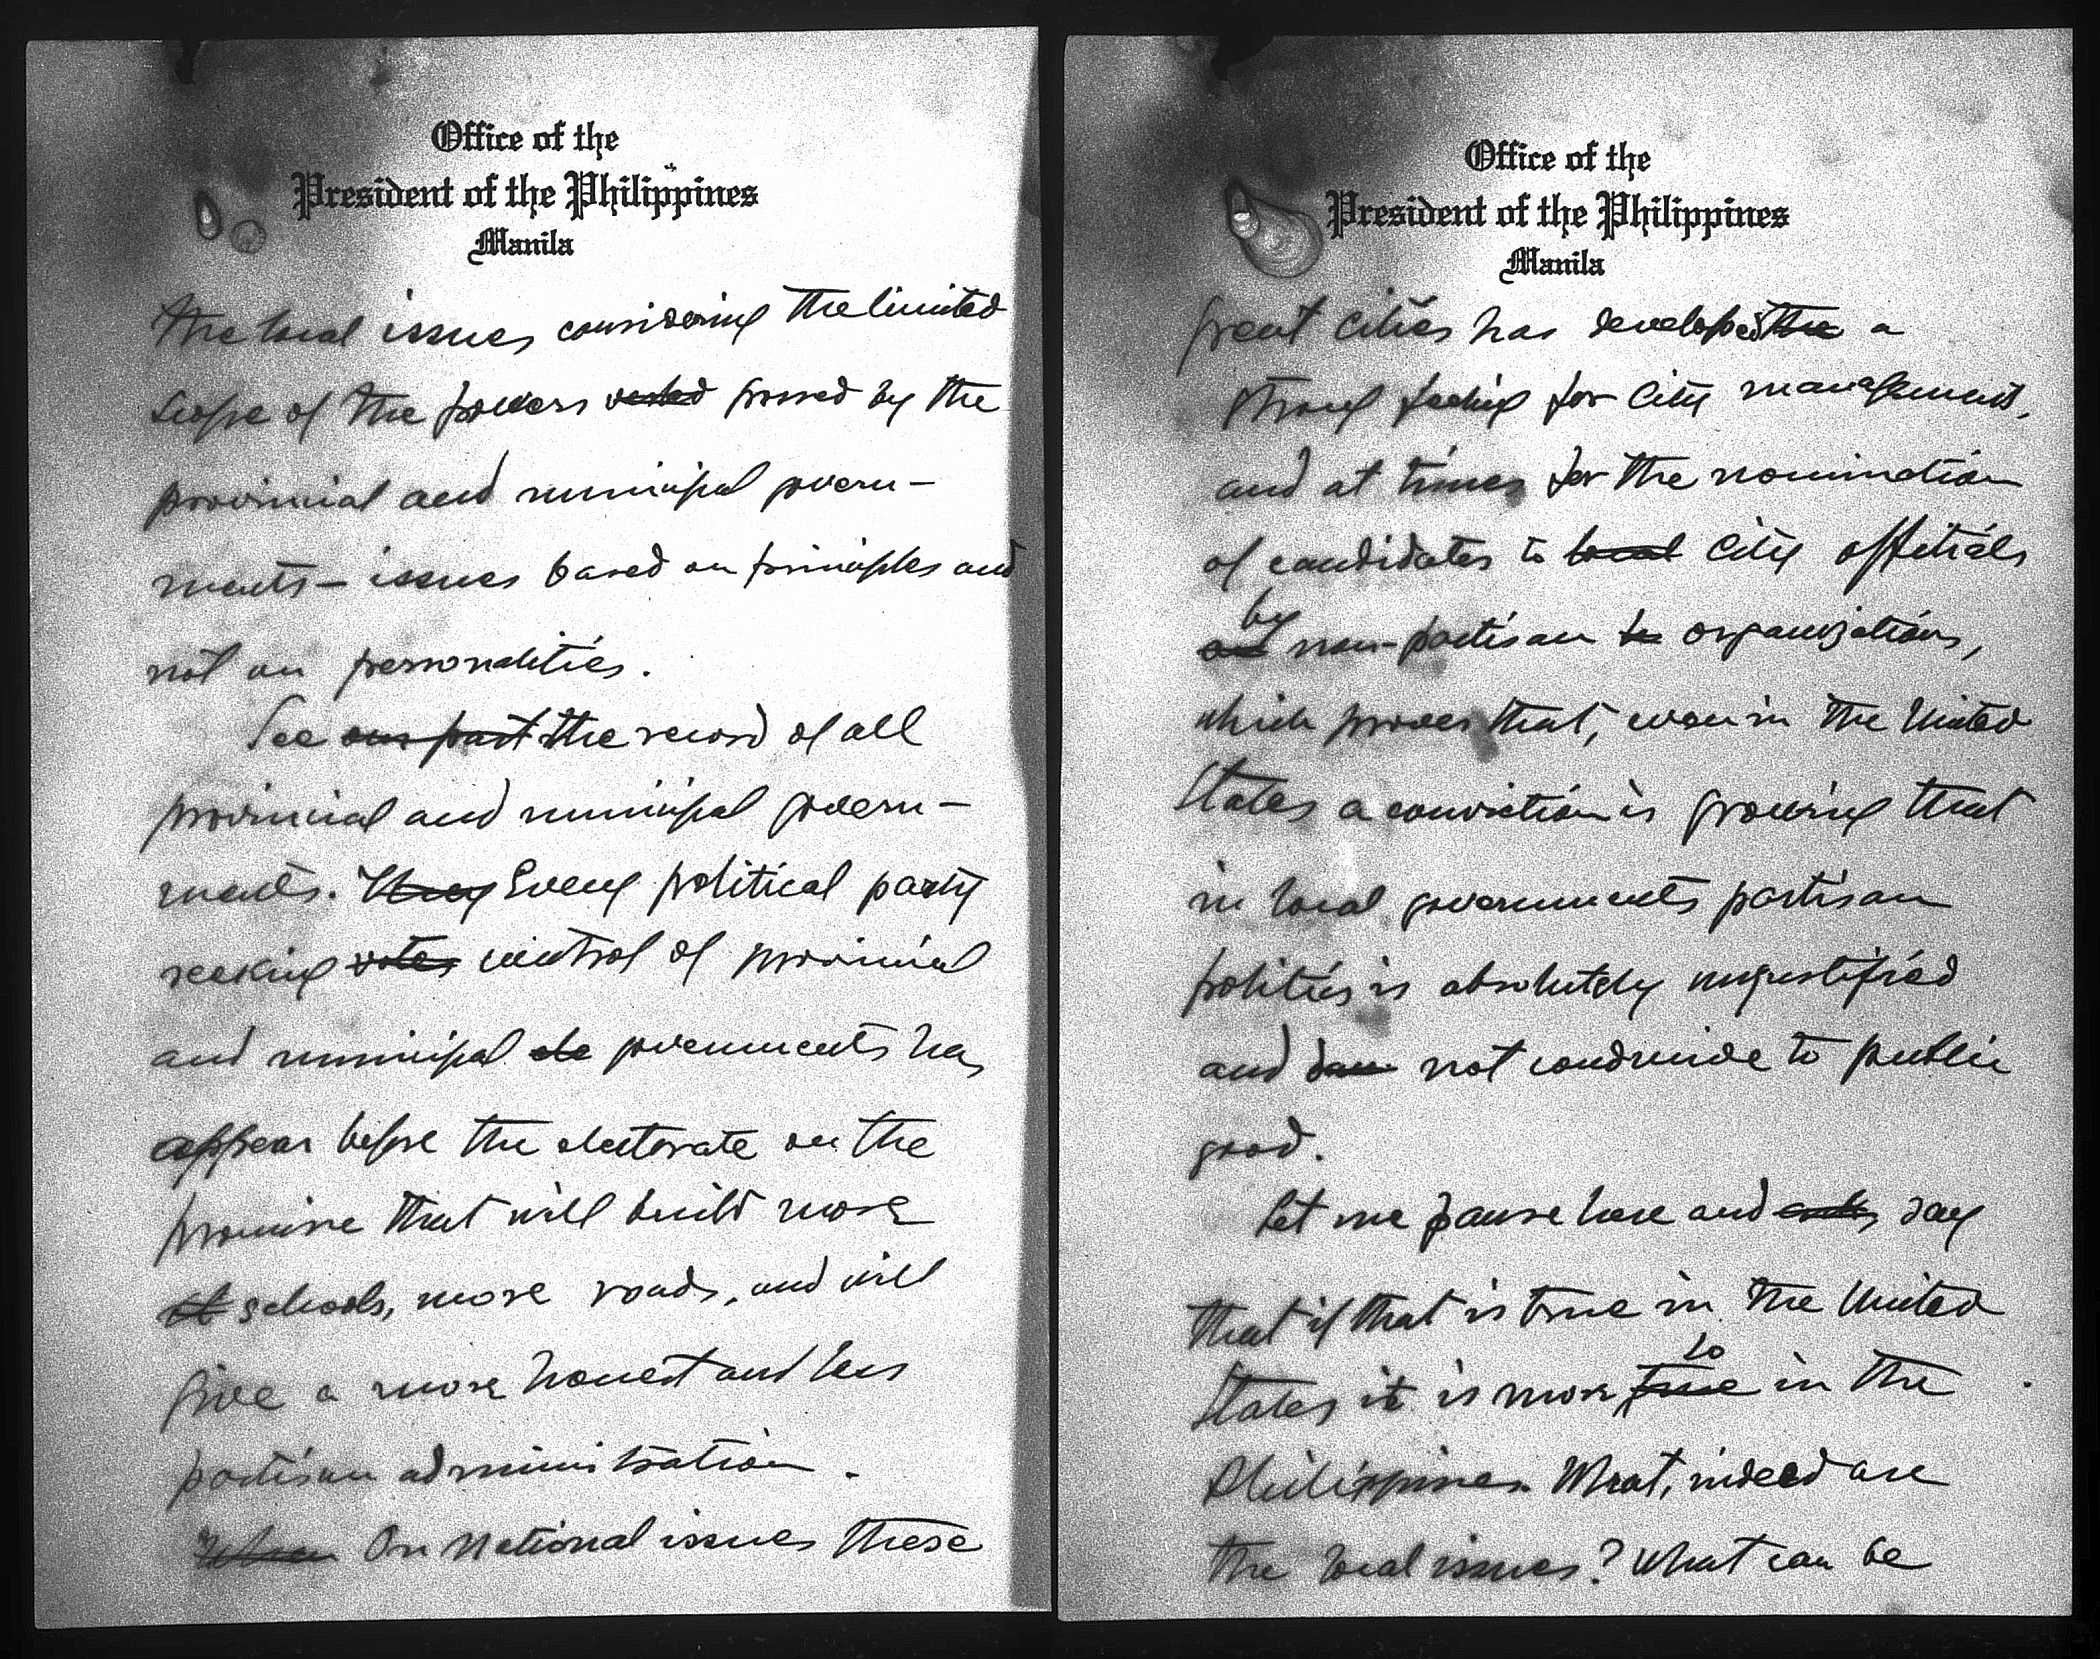 Office of the
President of the Philippines
Manila
the local issues considering the limited
scope of the powers vested posed by the
provincial and municipal govern-
ments - issues based on principles and
not on personalities.
See our past the record of all
provincial and municipal govern-
ments. They Every political party
seeking votes control of provincial
and municipal ele governments has
appear before the electorate on the
promise that will build more
st schools, more roads, and will
give a more honest and less
partisan administration.
When On National issues these
Office of the
President of the Philippines
Manila
great cities has developed the a
strong feeling for city management,
and at times for the nomination
of candidates to local city officials
by
and non-partisan to organizations,
which proves that, even in the United
States a conviction is growing that
in local governments partisan
politics is absolutely unjustified
and not conducive to public
good.
Let me pause here and say
that if that is true in the United
so
States it is more true in the
Philippines. What, indeed are
the local issues? What can be